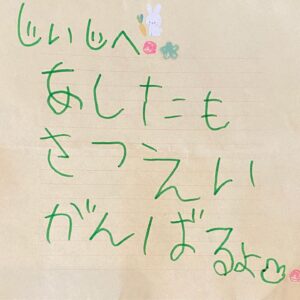 じいじへ
あしたも
さつえい
がんばるよ